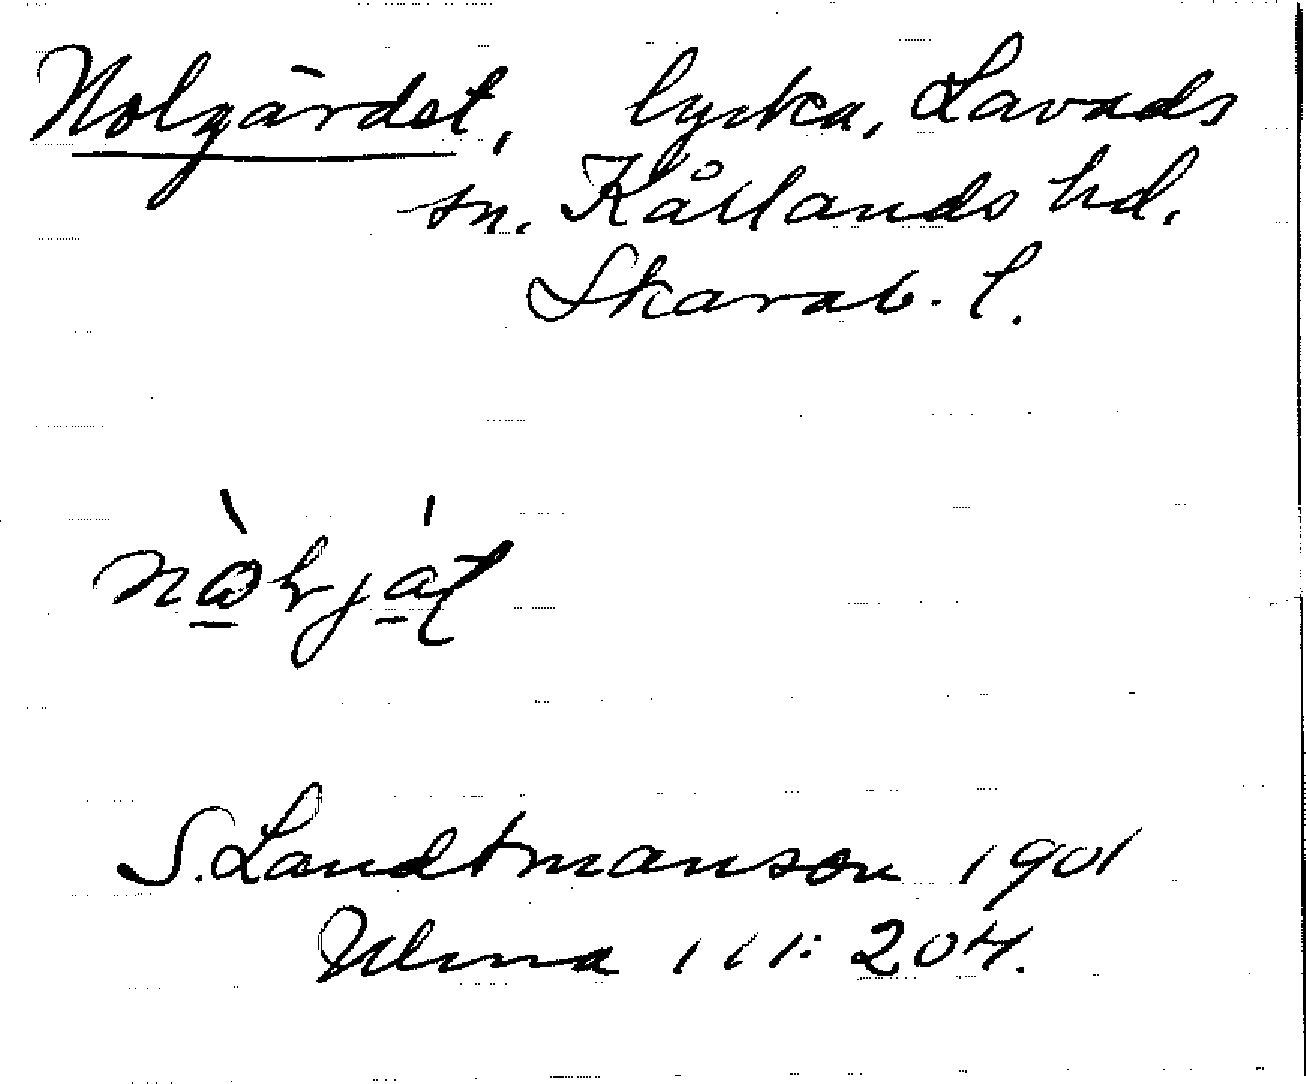 Nolgärdet, lycka, Lavads
sn. Kållands hd.
Skarab. l.
S. Landtmanson 1901
Ulma 111:204.